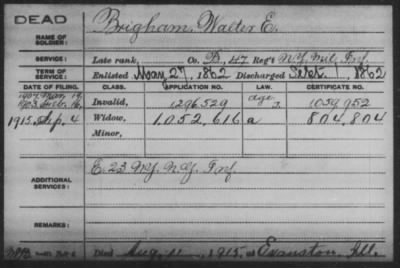 DEAD
NAME OF SOLDIER: Brigham, Walter E.
SERVICE: Late rank, Co. B, 47 Reg't N.Y. Mil. Inf.
TERM OF SERVICE: Enlisted May 27, 1862 Discharged Sept. 1, 1862
DATE OF FILING. CLASS. APPLICATION NO. LAW. CERTIFICATE NO.
Invalid, 1296529 age 1059952
1915 Sep. 4 Widow, 1,052,616 a 804,804
Minor,
ADDITIONAL SERVICES: E. 23 N.Y. N.G. Inf
REMARKS:
Died Aug. 11, 1915, at Evanston, Ill.